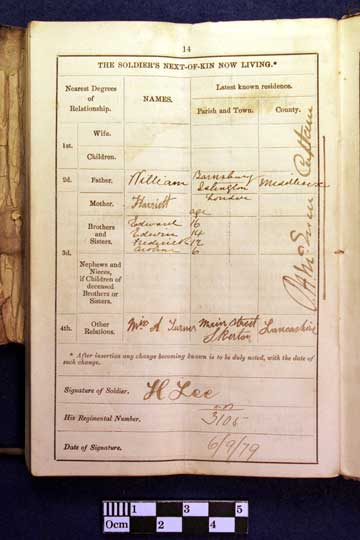 14
THE SOLDIER'S NEXT-OF-KIN NOW LIVING.*
Nearest Degrees
of
Relationship.
NAMES.
Latest known residence.
Parish and Town.
County.
1st.
Wife.
Children.
2d.
Father.
William
Barnsbury
Islington
London
Middlesex
Mother.
Harriett
age
3d.
Brothers
and
Sisters.
Edward 16
Edwin 14
Fredrick 12
Caroline 6
Nephews and
Nieces,
if Children of
deceased
Brothers or
Sisters.
4th.
Other
Relations.
Miss A Turner
Main Street
Skerton
Lancashire
Captain
* After insertion any change becoming known is to be duly noted, with the date of
such change.
Signature of Soldier.
H Lee
His Regimental Number.
3105
Date of Signature.
6/9/79
0cm 1 2 3 4 5